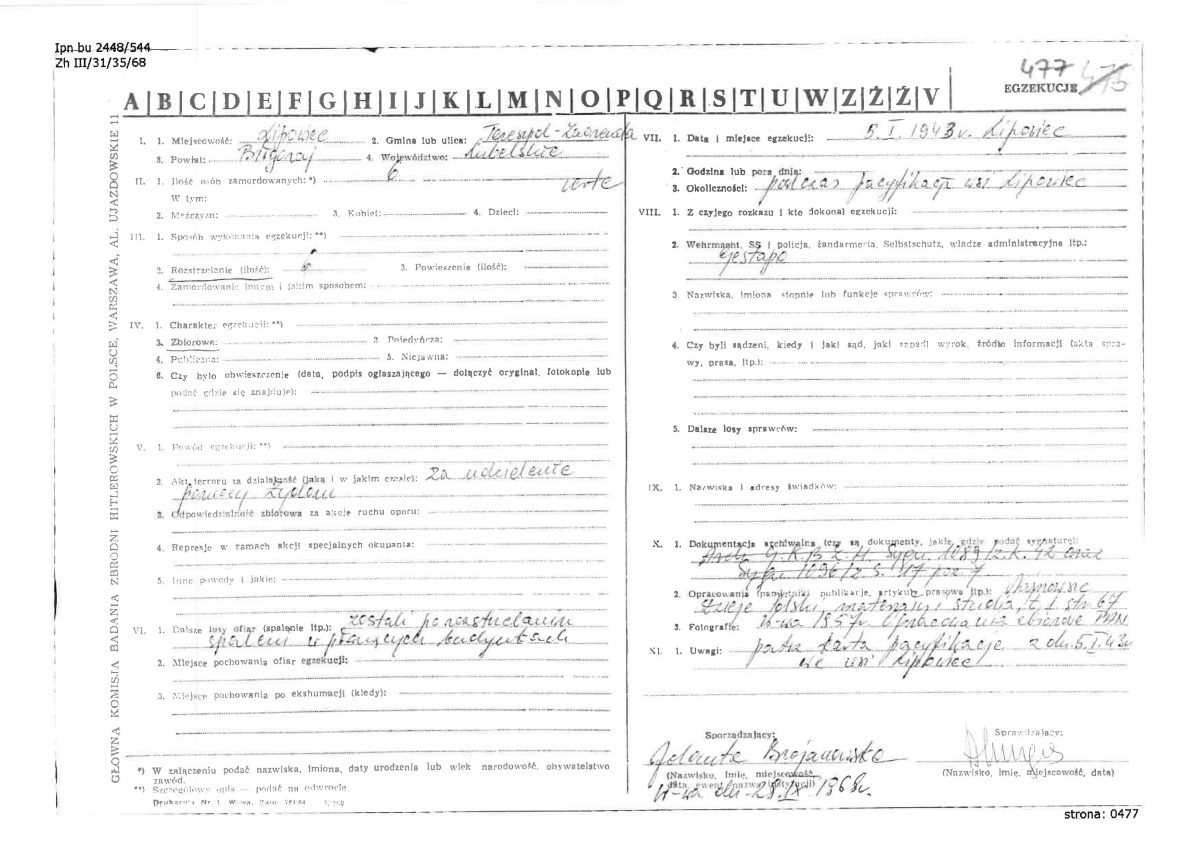 Ipn bu 2448/544
Zh III/31/35/68
477 475
EGZEKUCJE
A|B|C|D|E|F|G|H|I|J|K|L|M|N|O|P|Q|R|S|T|U|W|Z|Ż|Ź|V
GŁÓWNA KOMISJA BADANIA ZBRODNI HITLEROWSKICH W POLSCE, WARSZAWA, AL. UJAZDOWSKIE 11
I. 1. Miejscowość: Lipowiec 2. Gmina lub ulica: Tereszpol-Zaorenda
3. Powiat: Biłgoraj 4. Województwo: Lubelskie
II. 1. Ilość osób zamordowanych:*) 6
W tym:
2. Mężczyzn: 3. Kobiet: 4. Dzieci:
III. 1. Sposób wykonania egzekucji:**)
2. Rozstrzelanie (ilość): 6 3. Powieszenie (ilość):
4. Zamordowanie innym i jakim sposobem:
IV. 1. Charakter egzekucji:**)
3. Zbiorowa: 2 Pojedyńcza:
4. Publiczna: 5. Niejawna:
6. Czy było obwieszczenie (data, podpis ogłaszającego — dołączyć oryginał, fotokopię lub
podać gdzie się znajduje):
V. 1. Powód egzekucji:**)
2. Akt terroru za działalność (jaką i w jakim czasie): Za udzielenie
pomocy Żydom
3. Odpowiedzialność zbiorowa za akcje ruchu oporu:
4. Represje w ramach akcji specjalnych okupanta:
5. Inne powody i jakie:
VI. 1. Dalsze losy ofiar (spalenie itp.): zostali po rozstrzelaniu
spaleni w płonących budynkach
2. Miejsce pochowania ofiar egzekucji:
3. Miejsce pochowania po ekshumacji (kiedy):
*) W załączeniu podać nazwiska, imiona, daty urodzenia lub wiek narodowość, obywatelstwo
zawód.
**) Szczegółowy opis — podać na odwrocie
Drukarnia Nr 1, W-wa, Zam.
VII. 1. Data i miejsce egzekucji: 5. I. 1943 r. Lipowiec
2. Godzina lub pora dnia:
3. Okoliczności: podczas pacyfikacji wsi Lipowiec
VIII. 1. Z czyjego rozkazu i kto dokonał egzekucji:
2. Wehrmacht, SS i policja, żandarmeria, Selbstschutz, władze administracyjne itp.:
Gestapo
3 Nazwiska, imiona stopnie lub funkcje sprawców:
4. Czy byli sądzeni, kiedy i jaki sąd, jaki zapadł wyrok, źródła informacji (akta spra-
wy, prasa, itp.):
5. Dalsze losy sprawców:
IX. 1. Nazwiska i adresy świadków:
X. 1. Dokumentacja archiwalna (czy są, dokumenty, jakie, gdzie podać sygnaturę):
Arch. G.K.B.Z.H. Sygn. 1089/z.k. 42 oraz
Sygn. 1096/z.s. 47 poz. 7
2. Opracowania (pamiętniki, publikacje, artykuły prasowe itp.):
Dzieje Polski, materiały i studia, t. I str 67
3. Fotografie: W-wa 1957 r. Opracowania zbiorowe PAN
XI. 1. Uwagi: patrz karta pacyfikacje z dn. 5.I.43r
we wsi Lipowiec!
Sporządzający:
Jolanta
(Nazwisko, imię, miejscowość,
data, ewent. nazwa instytucji)
W-wa dn 28.IX 1968r.
Sprawdzający:
(Nazwisko, imię, miejscowość, data)
strona: 0477